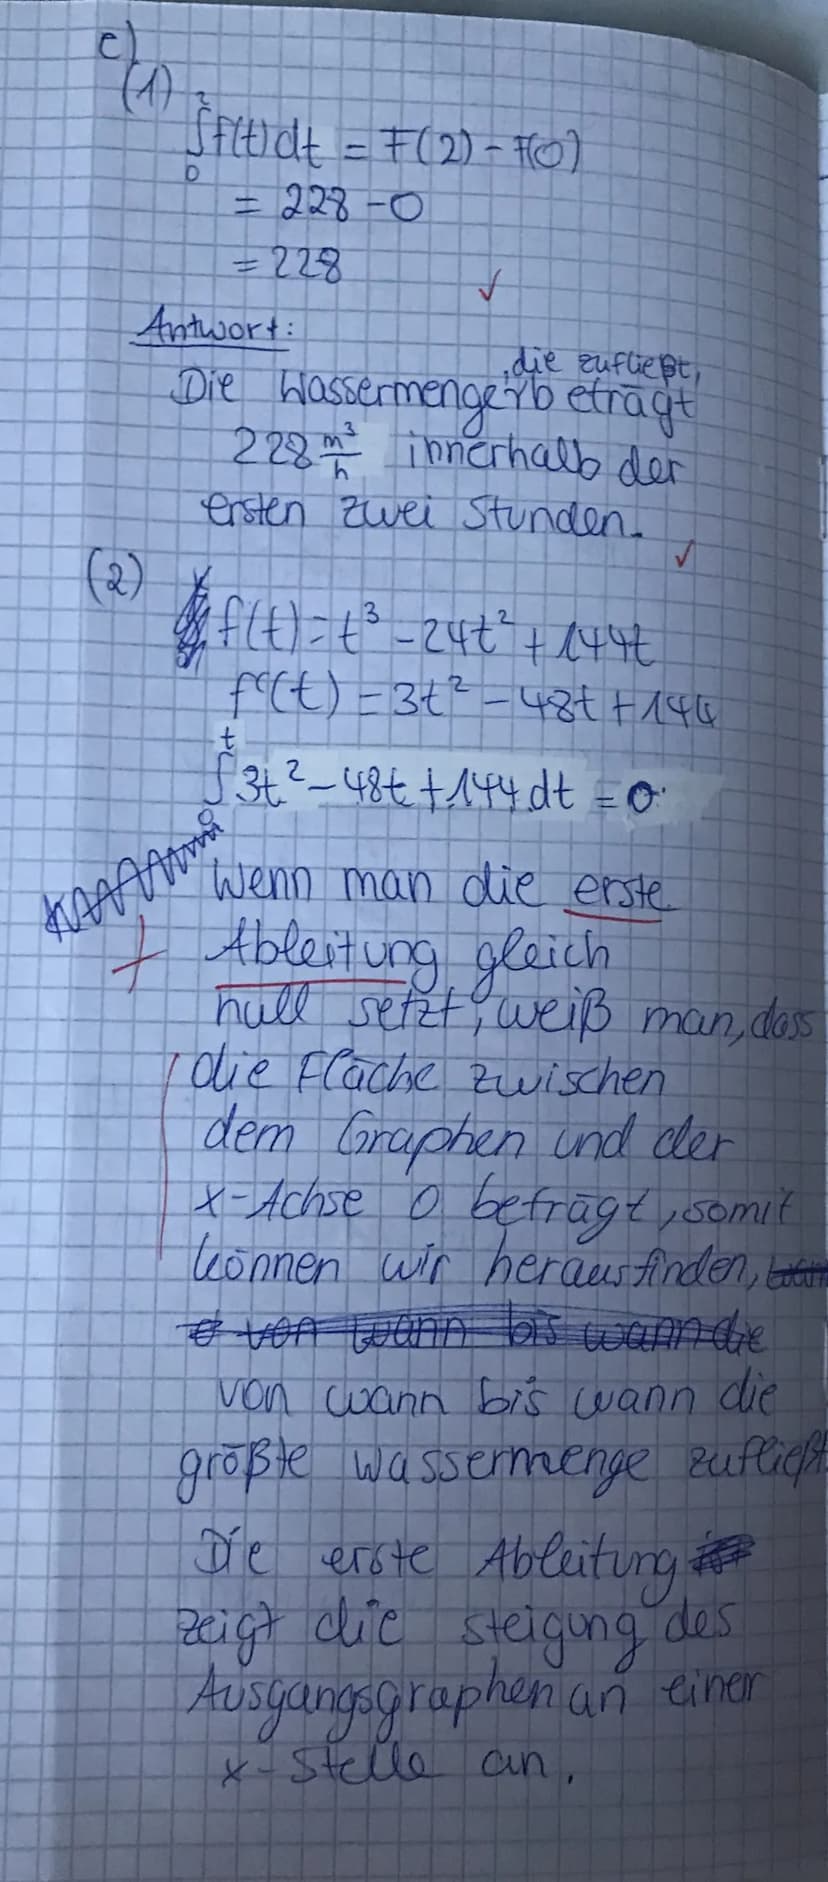 c)
(1)
2
∫f(t)dt = F(2) - F(0)
0
= 228 - 0
= 228 ✓
Antwort:
,die zufließt,
Die Wassermenge beträgt
228 m³/h innerhalb der
ersten zwei Stunden. ✓
(2)
f(t) = t³ - 24t² + 144t
f'(t) = 3t² - 48t + 144
t
∫ 3t² - 48t + 144 dt = 0
0
Wenn man die erste
Ableitung gleich
null setzt, weiß man, dass
die Fläche zwischen
dem Graphen und der
x-Achse 0 beträgt, somit
können wir herausfinden,
von wann bis wann die
von wann bis wann die
größte Wassermenge zufließt
Die erste Ableitung
zeigt die Steigung des
Ausgangsgraphen an einer
x-Stelle an.